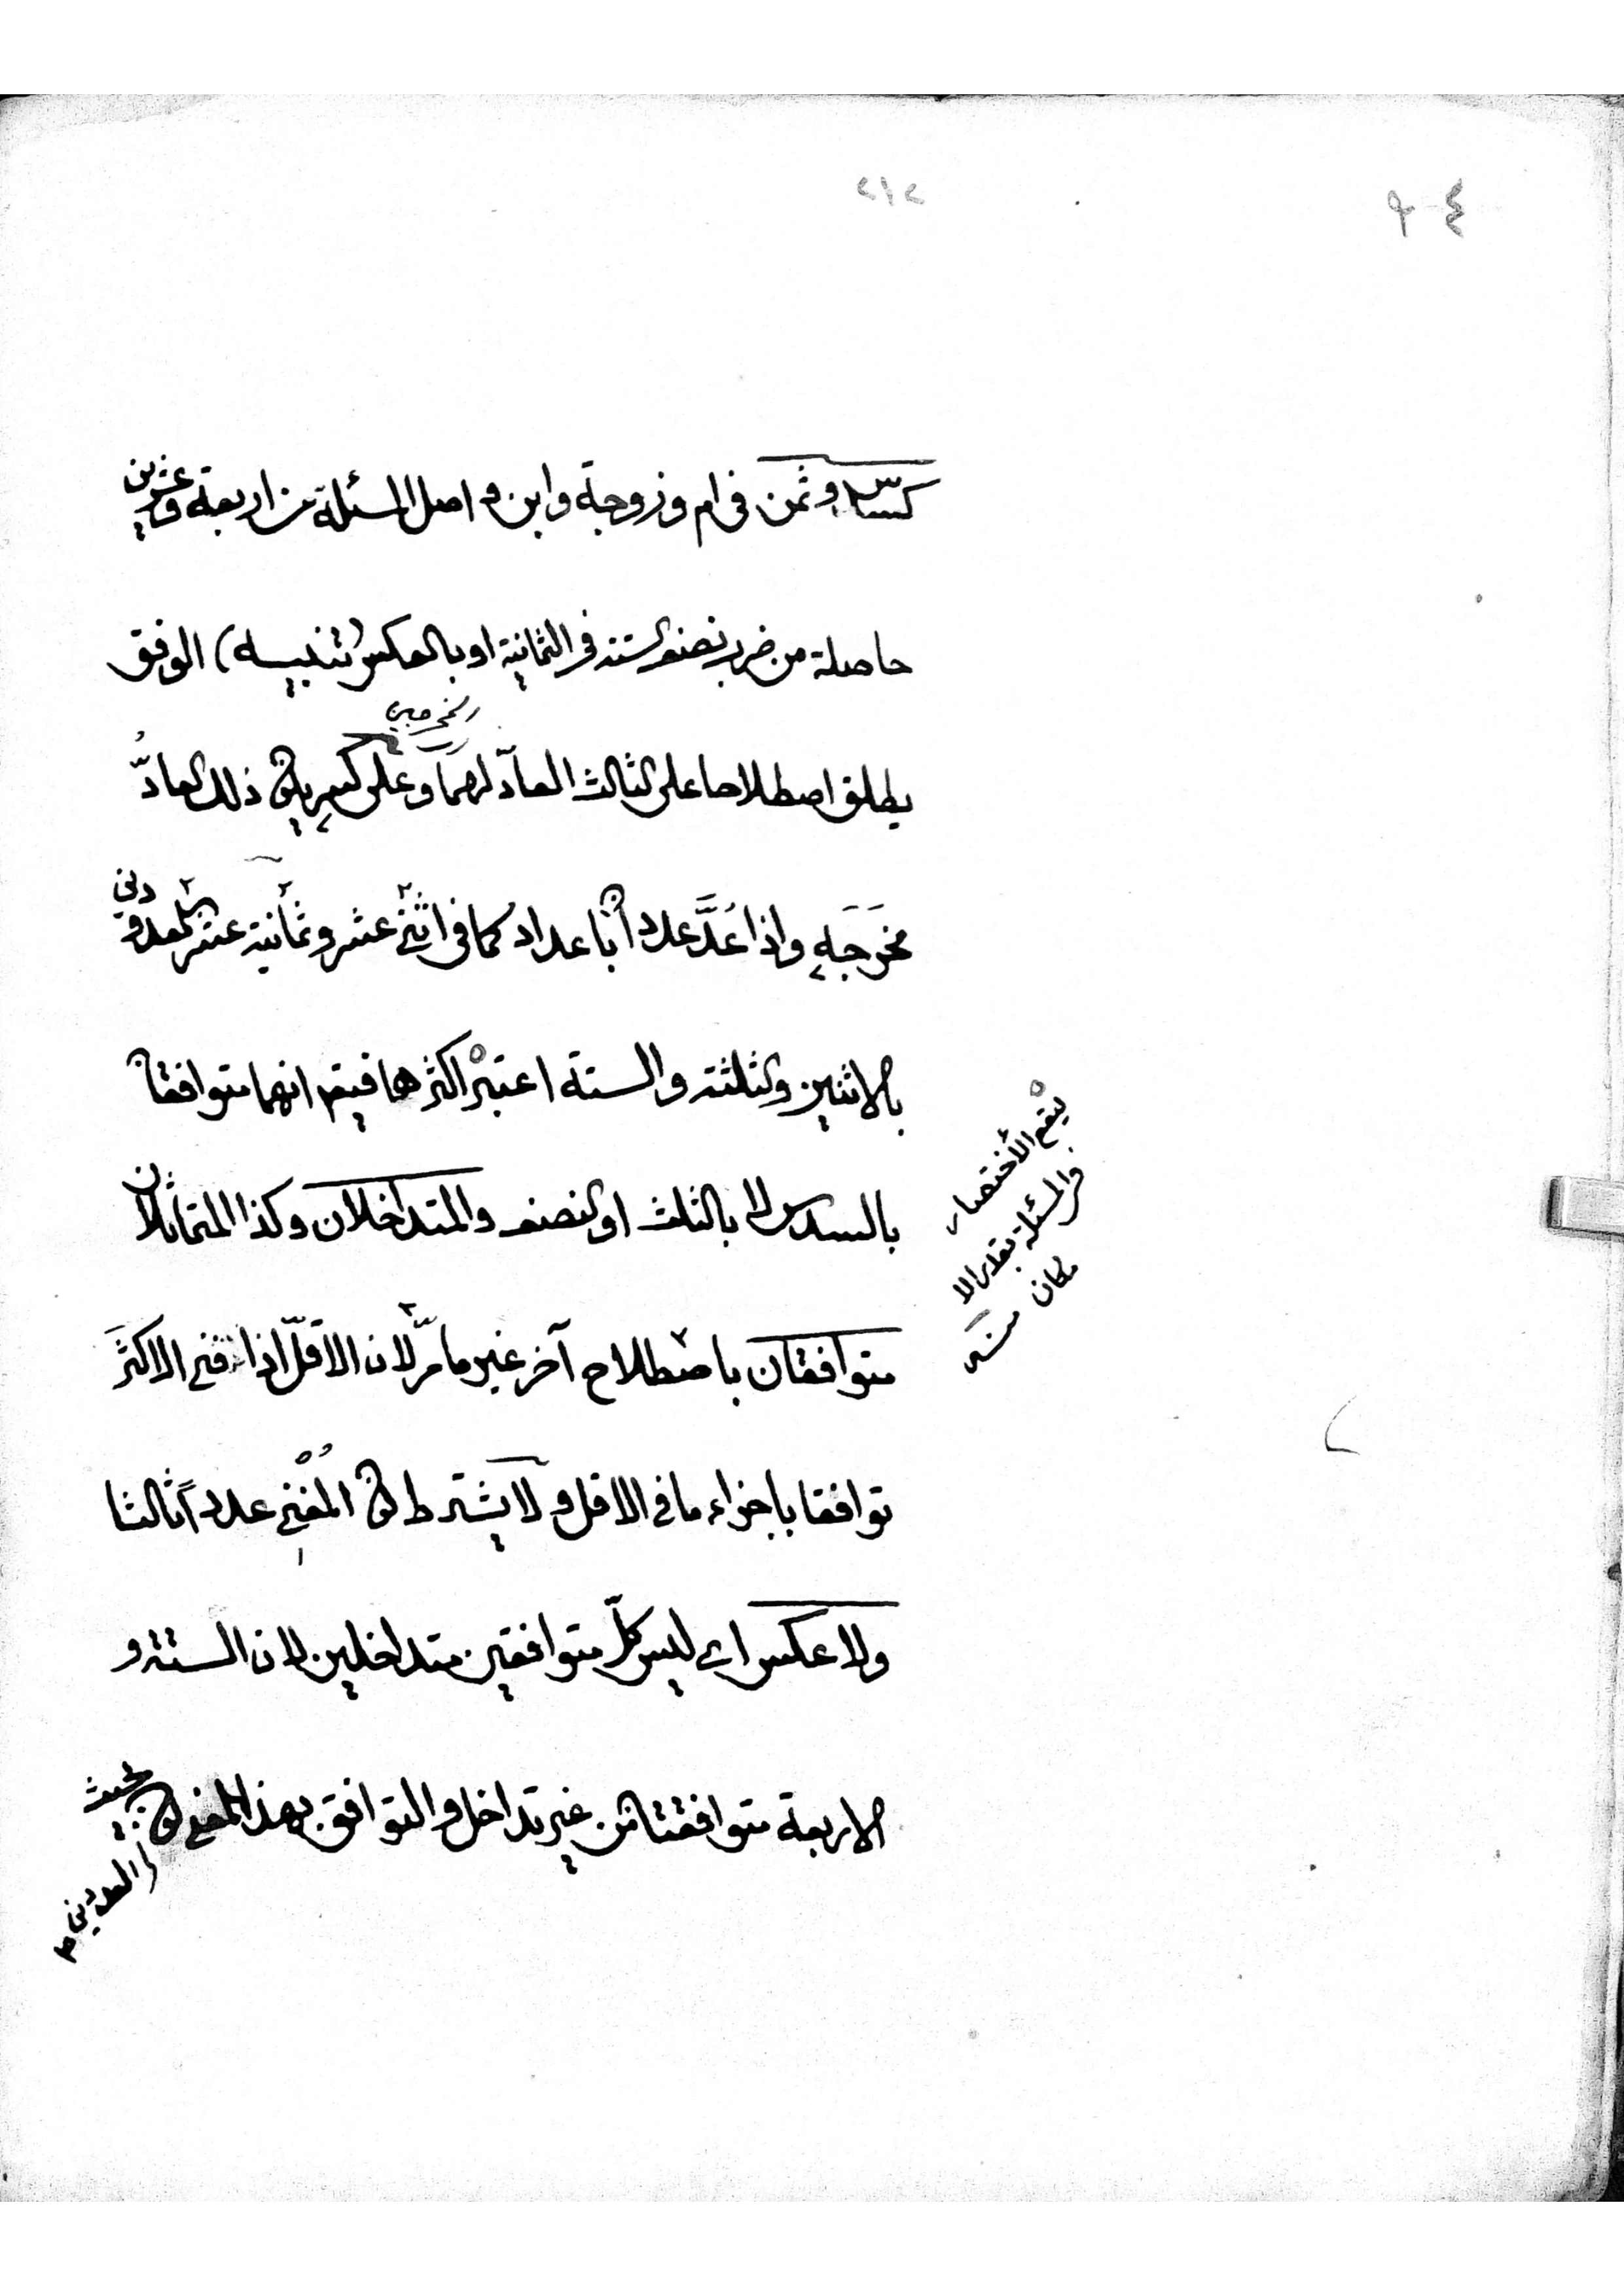 ٢١٢
٩٤
كسدس وثمن في ام وزوجة وابن و اصل المسئلة من اربعة وعشرين
حاصلة من ضرب نصف الستة في الثمانية او بالعكس (تنبيه) الوفق
المخرجين
يطلق اصطلاحا على الثالث العادّ لهما وعلى كسر يكون ذلك العادُّ
مَخرَجَه واذا عَدَّ عدداً باعداد كما في اثنى عشر وثمانية عشر المعدودين
بالاثنين والثلثة والستة اعتبرْ اكثرها فيقم انهما متوافقان
بالسدس لا بالثلث او النصف والمتداخلان وكذا المتماثلان
متوافقان باصطلاح آخر غير ما مرّ لان الاقلّ اذا افنى الاكثرَ
توافقا باجزاء ما في الاقل و لا يشترط كون المُفْنِي عدداً ثالثا
ولا عكس اي ليس كلّ متوافقين متداخلين لان الستة و
الاربعة متوافقتان من غير تداخل و التوافق بهذا المعنى كون بحيث
العددين
ليقع الأختصار
في المسئلة بقدر الا
مكان منه